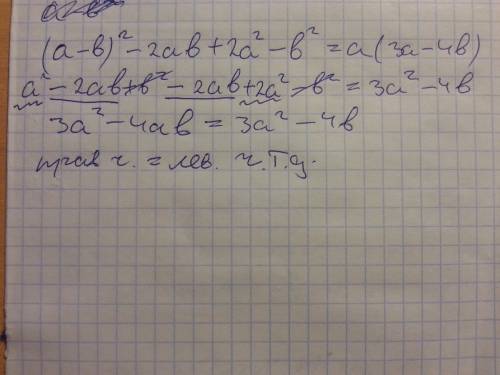 (a-b)² - 2ab + 2a² - b² = a(3a - 4b)
a² - 2ab + b² - 2ab + 2a² - b² = 3a² - 4b
3a² - 4ab = 3a² - 4b
прав ч. = лев. ч.т.д.